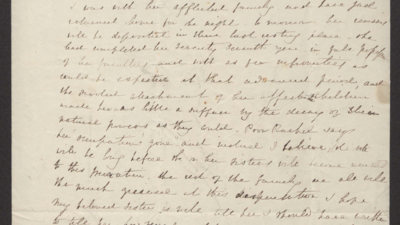 I was with her afflicted family and have just
returned home for the night. Tomorrow her remains
will be deposited in their last resting place. She
had completed her seventy seventh year in full
of her faculties and with as few infirmities as
could be expected at that advanced period, and
the marked attachment of her affectionate children
made her as little a sufferer by the decay of them
natural powers as they could. Poor Rachel says
her occupation's gone and indeed I believe it will
will be long before she or her sisters will become
to this privation. the rest of the family are all well
tho much grieved at this dispensation I hope
my beloved sister is well tell her I should have written
to